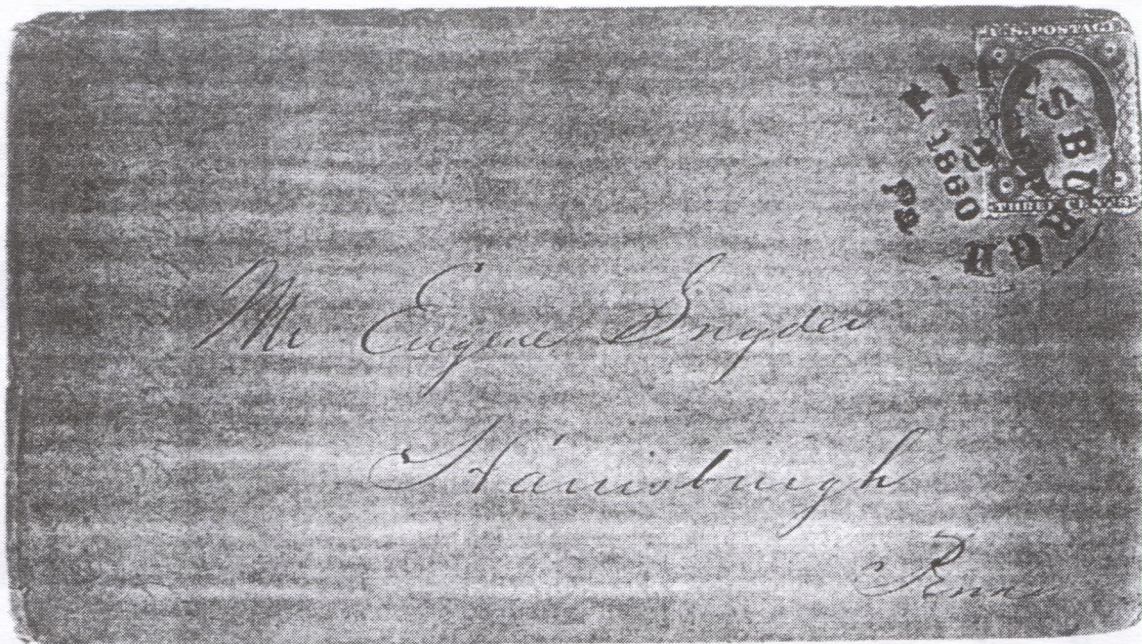 U.S. POSTAGE
THREE CENTS
PITTSBURGH
1860
Pa
Mr Eugene Snyder
Harrisburgh
Penn